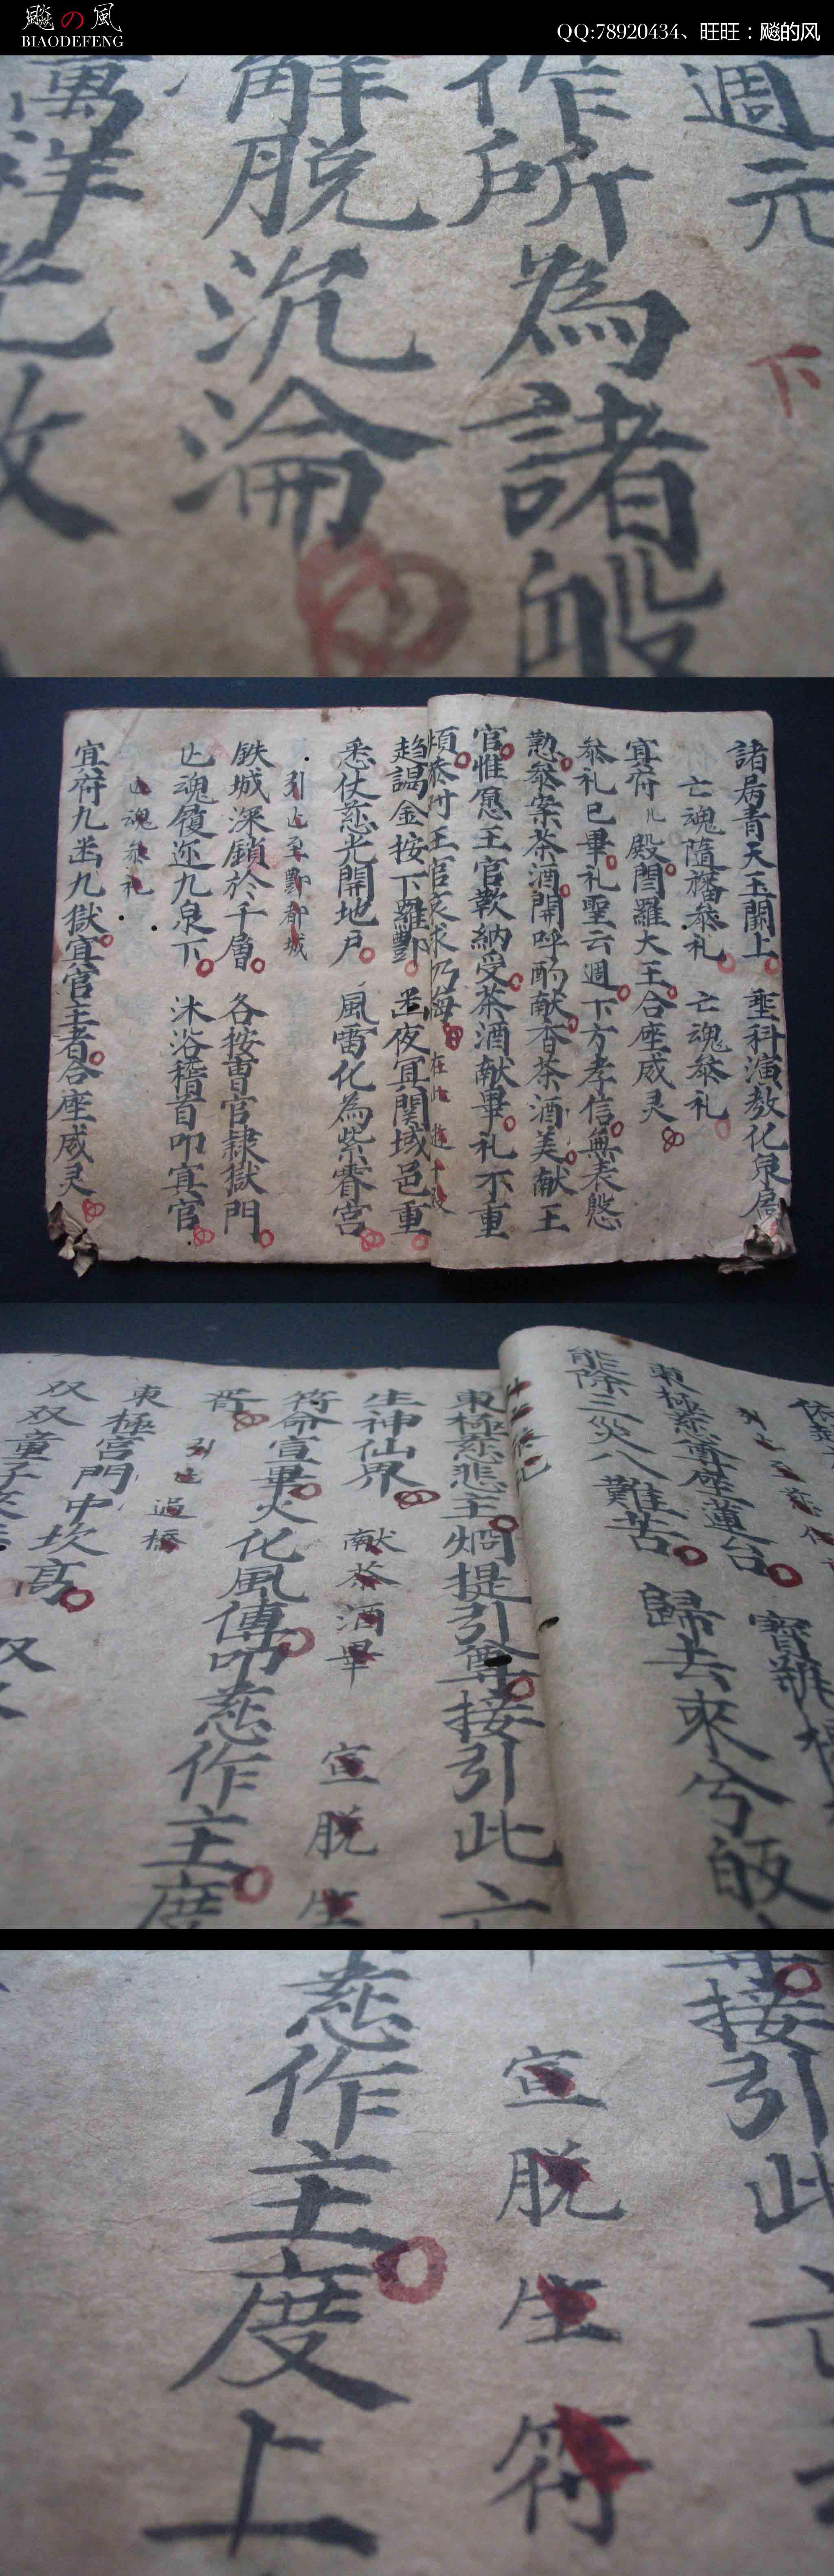 飈の風
BIAODEFENG
QQ:78920434、旺旺：飚的风
週元
下
作所為諸般
解脱沉淪
萬祥
諸病青天玉闕上 垂科演教化泉扃
亡魂隨旛叅礼 亡魂叅礼
冥府儿殿閻羅大王合座威灵
叅礼已畢礼聖云週下方孝信無表慇
懃叅案茶酒開呼酌献香茶酒美献王
官惟愿王官歡納受茶酒献畢礼不重
趋謁金按下羅酆 黑夜冥関域邑重
悉仗慈光開地户 風雷化為紫霄宮
引亡至酆都城
鉄城深鎖於千層 各按曹官隷獄門
亡魂履迹九泉下 沐浴稽首叩冥官
亡魂叅礼
冥府九幽九獄冥官王者合座威灵
東極慈尊座蓮台 寶
能除三災八難苦 歸去來兮皈
東極慈悲主炯提引尊接引此亡
生神仙界 献茶酒畢 宣脱生
符命宣畢火化風傳叩慈作主度
引亡過橋
東極宮門中坎高
双双童子
接引此亡
宣脱生符
慈作主度上